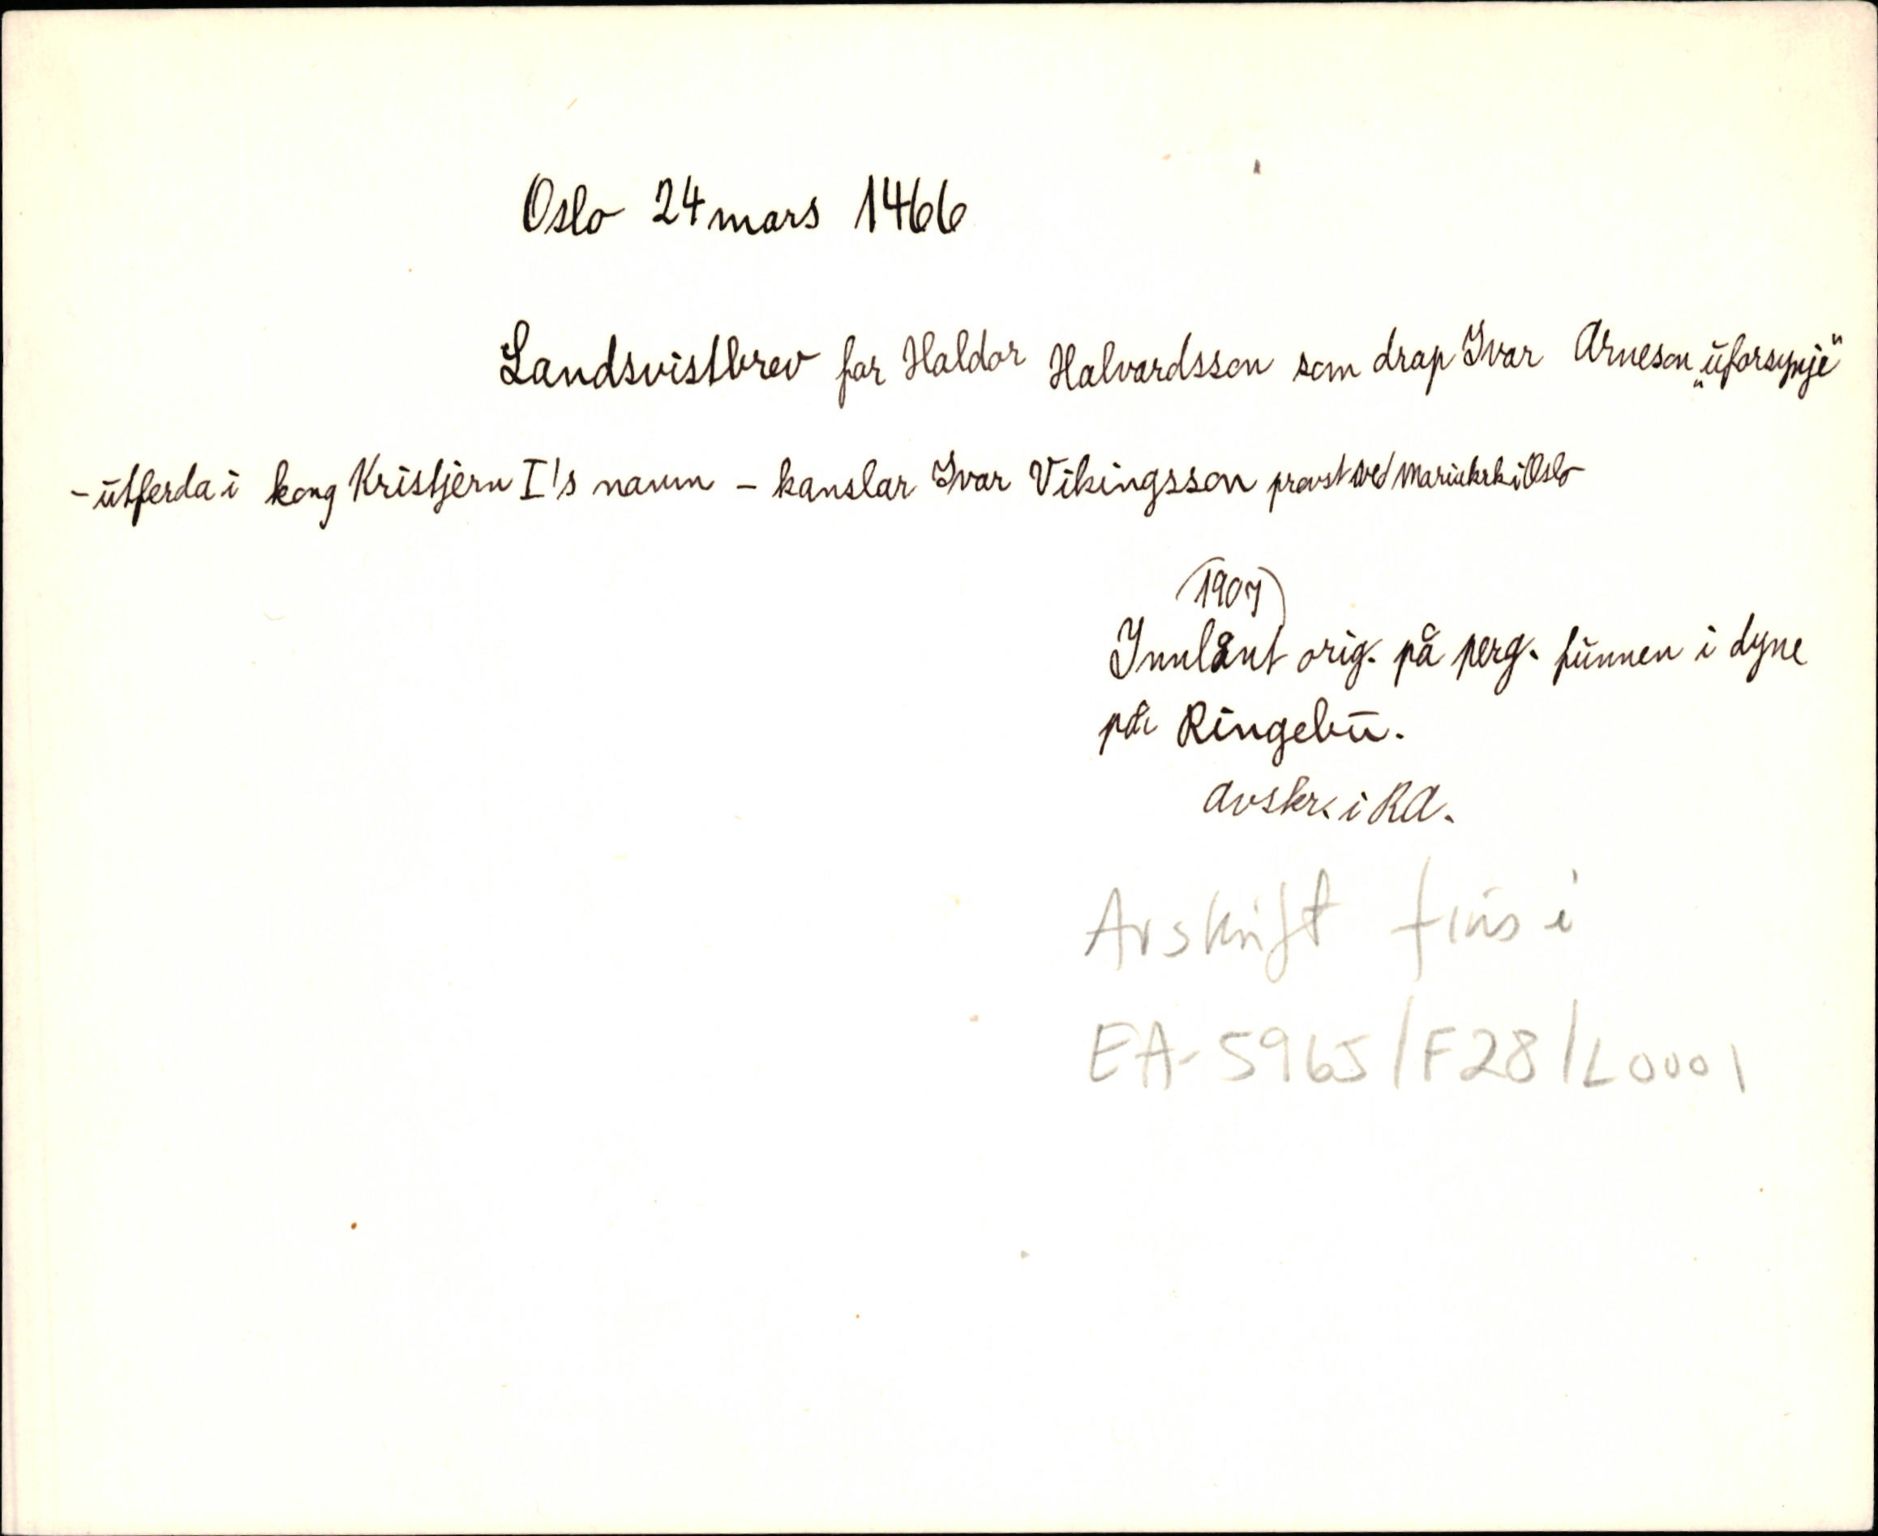 Oslo 24 mars 1466
Landsvistbrev for Haldor Halvardsson som drap Ivar Arneson „uforsynje"
- utferda i kong Kristjern I's navn - kanslar Ivar Vikingsson provst ved Mariakrk i Oslo
(1907)
Innlånt orig. på perg. funnen i dyne
på Ringebu.
Avskr. i RA.
Avskrift fins i
EA-5965/F28/L0001